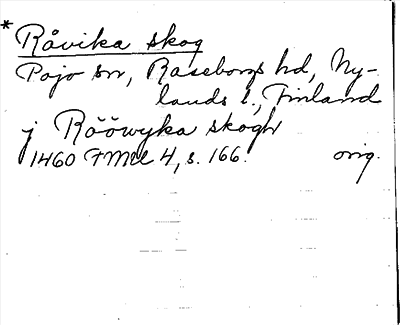 * Råvika skog
Pojo sn, Raseborgs hd, Ny-
lands l., Finland
j Rååwyka skogh
1460 FMU 4, s. 166. orig.